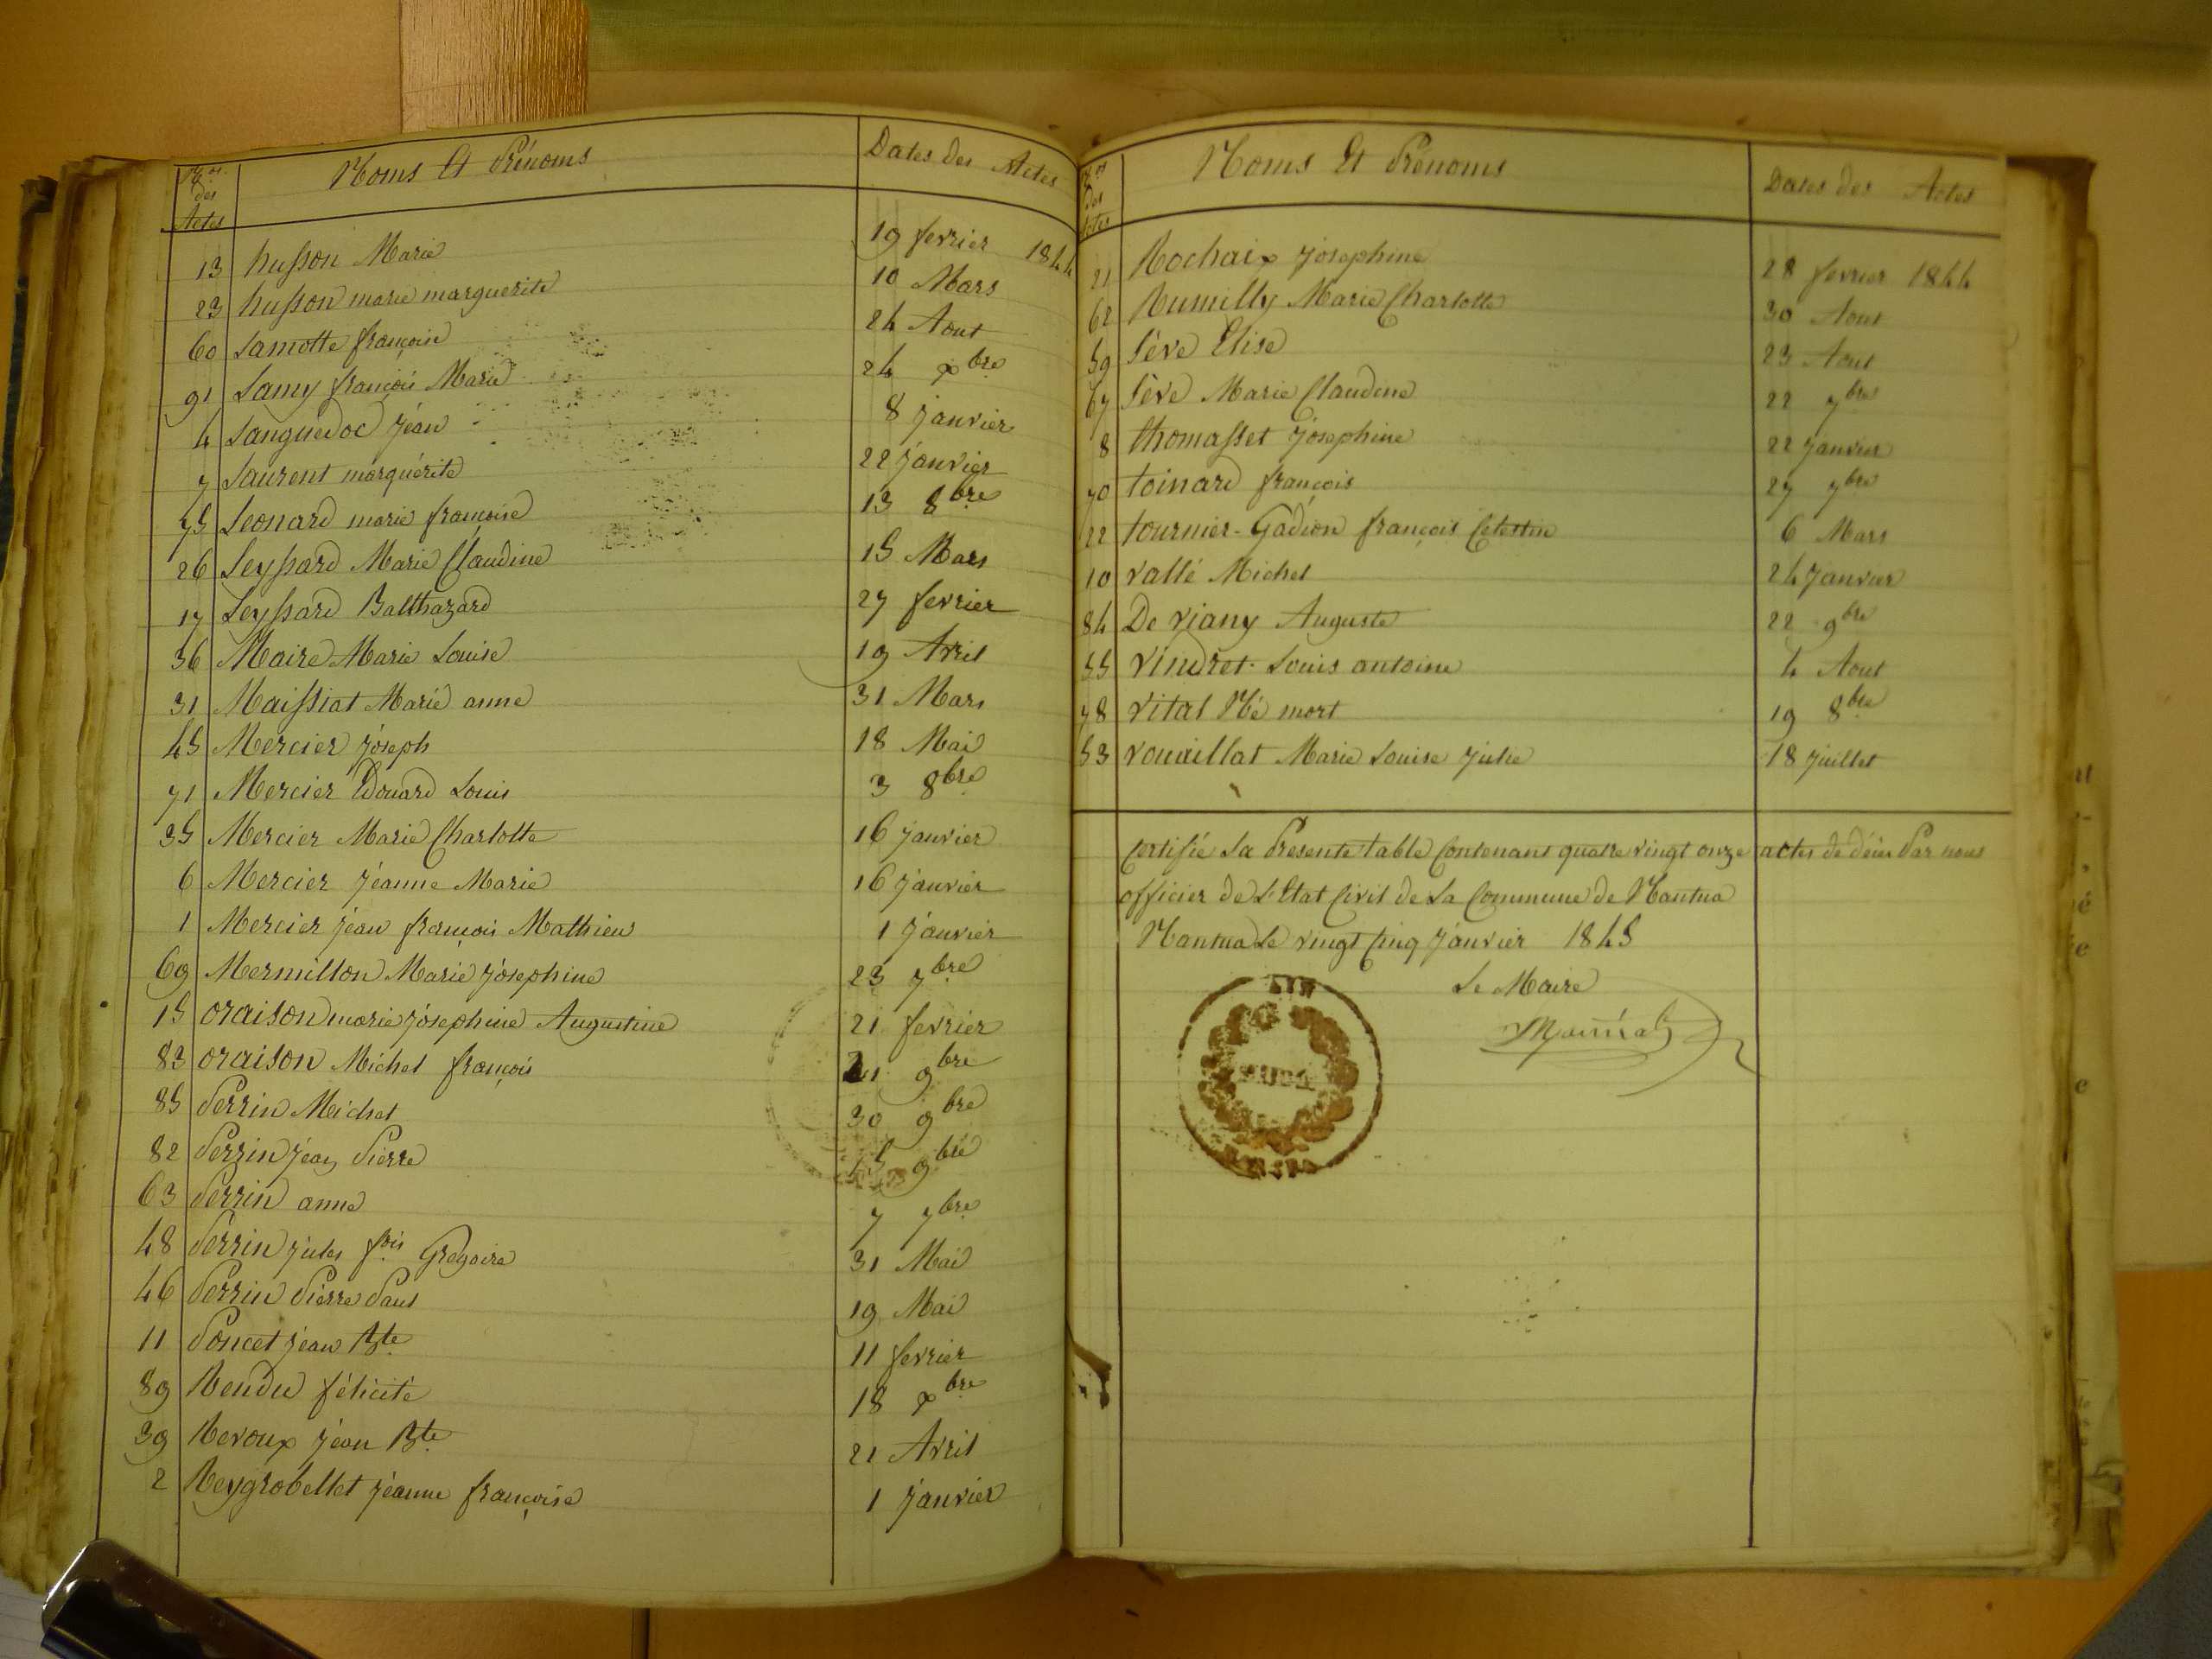 Nos des Actes Noms Et Prénoms Dates des Actes
13 husson Marie 19 fevrier 1844
23 husson marie marguerite 10 Mars
60 Lamotte françois 24 Aout
91 Lamy françois Marie 24 xbre
4 Languedoc jéan 8 janvier
7 Laurent marguérite 22 janvier
75 Leonard marie françoise 13 8bre
26 Leyssard Marie Claudine 15 Mars
17 Leyssard Balthazard 27 fevrier
36 Maire Marie Louise 19 Avril
31 Maissiat Marie anne 31 Mars
45 Mercier joseph 18 Mai
71 Mercier Edouard Louis 3 8bre
35 Mercier Marie Charlotte 16 janvier
6 Mercier jéanne Marie 16 janvier
1 Mercier jéan françois Mathieu 1 janvier
69 Mermillon Marie josephine 23 7bre
15 oraison marie josephine Augustine 21 fevrier
83 oraison Michel françois 21 9bre
85 Perrin Michel 30 9bre
82 Perrin jéan Pierre 15 9bre
63 Perrin anne 7 7bre
48 Perrin jules fois Gregoire 31 Mai
46 Perrin Pierre Paul 19 Mai
11 Poncet jéan Bte 11 fevrier
89 Rendu félicité 18 xbre
39 Reroux jéan Bte 21 Avril
2 Reygrobellet jéanne françoise 1 janvier
Nos des Actes Noms Et Prénoms Dates des Actes
21 Rochaix josephine 28 fevrier 1844
62 Rumilly Marie Charlotte 30 Aout
59 Sève Elise 23 Aout
67 Sève Marie Claudine 22 7bre
8 thomasset josephine 22 janvier
70 toinard françois 27 7bre
22 tournier-Gadion françois Celestin 6 Mars
10 vallé Michel 24 janvier
84 De viany Auguste 22 9bre
55 vindret Louis antoine 4 Aout
78 vital Né mort 19 8bre
53 vouaillat Marie Louise julie 18 juillet
Certifié La Présente table Contenant quatre vingt onze actes de déces Par nous
officier de L'Etat Civil de La Commune de Nantua
Nantua Le vingt Cinq janvier 1845
Le Maire